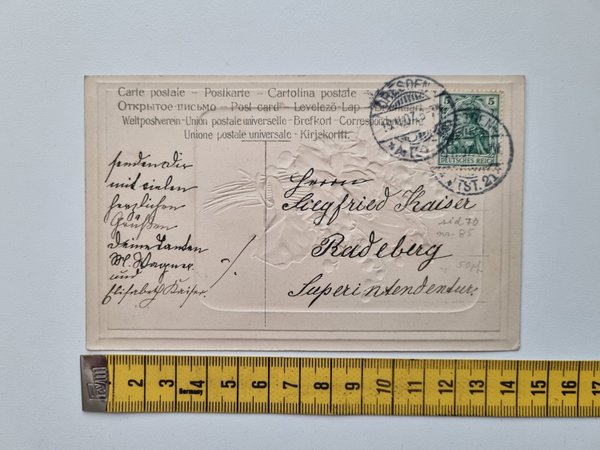 Carte postale – Postkarte – Cartolina postale
Открытое письмо – Post card – Levelező-Lap
Weltpostverein – Union postale universelle – Brefkort – Correspon
Unione postale universale – Kirjekortti.
DRESDEN
5
5
DEUTSCHES REICH
senden dir
mit vielen
herzlichen
Grüßen
Deine Tanten
M. Wagner
und
Elisabeth Kaiser.
Herrn
Siegfried Kaiser
Radeberg
Superintendentur.
85
1 2 3 4 5 6 7 8 9 10 11 12 13 14 15 16 17
Germany